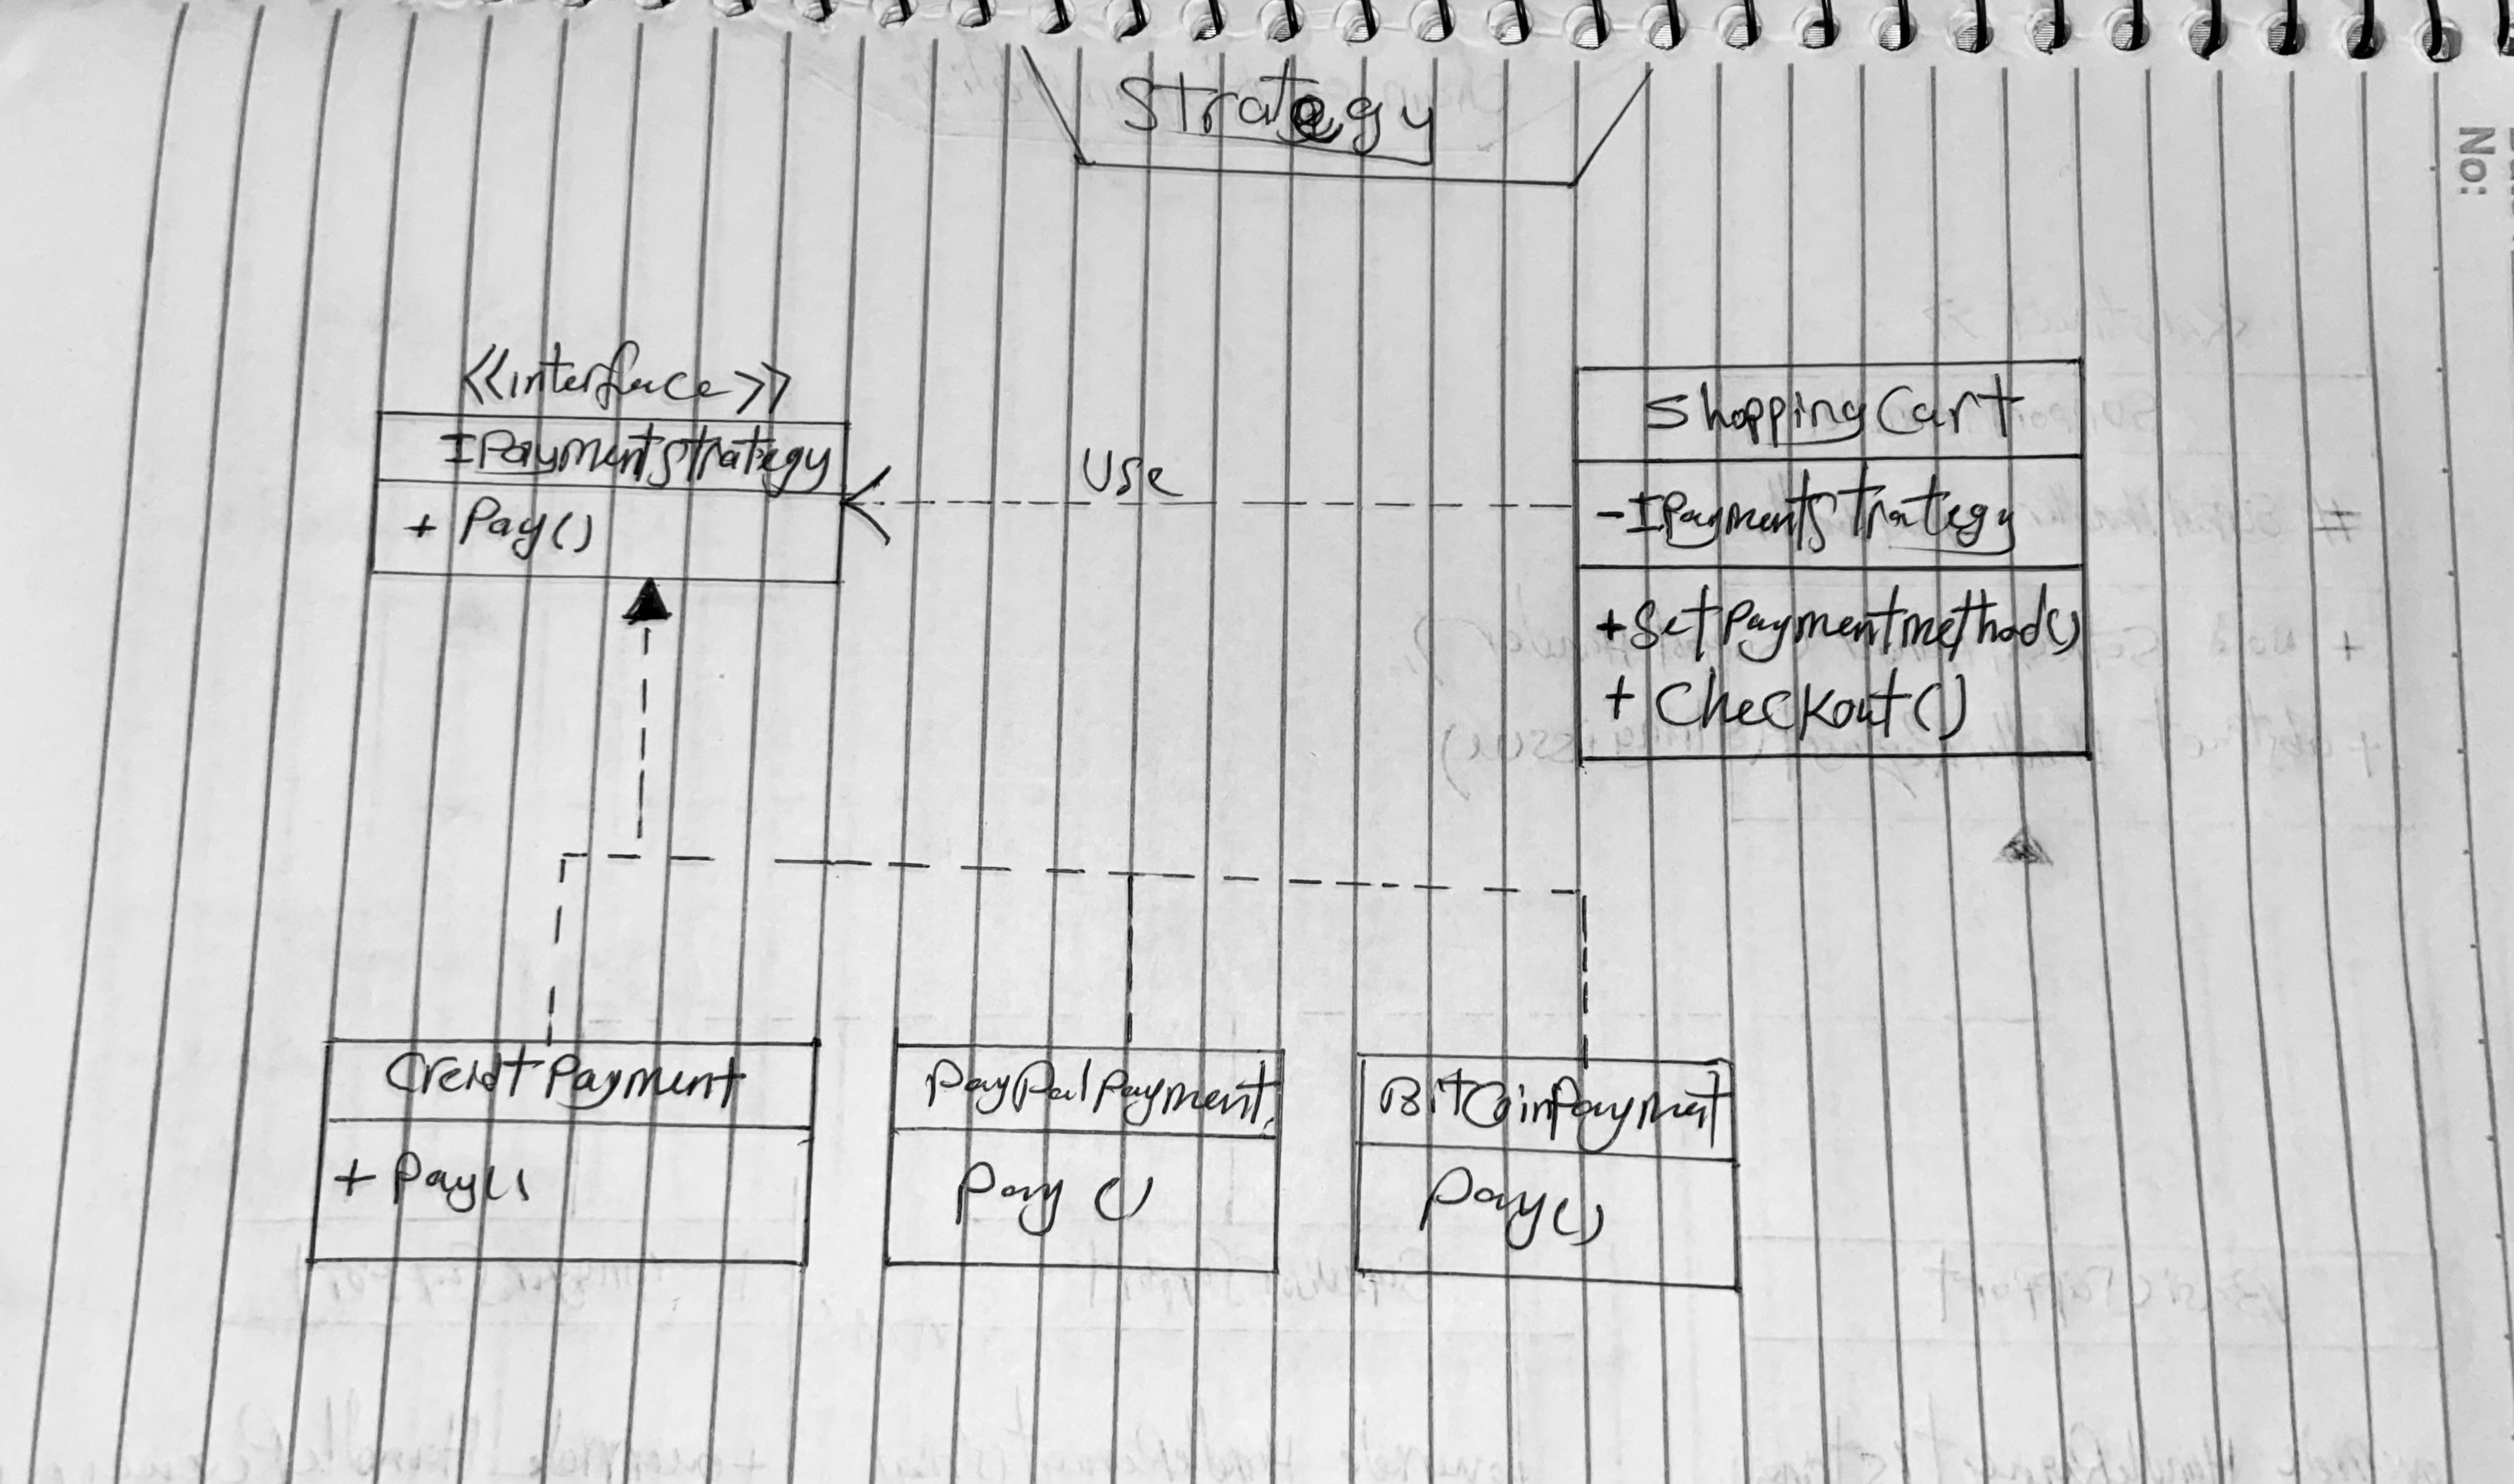 Strategy
No:
<<interface>>
IPaymentstrategy
+ Pay()
Use
ShoppingCart
-IPaymentStrategy
+SetPaymentmethod()
+ Checkout()
CreidtPayment
+ Pay()
PayPalPayment
Pay ()
BitCoinPayment
Pay()